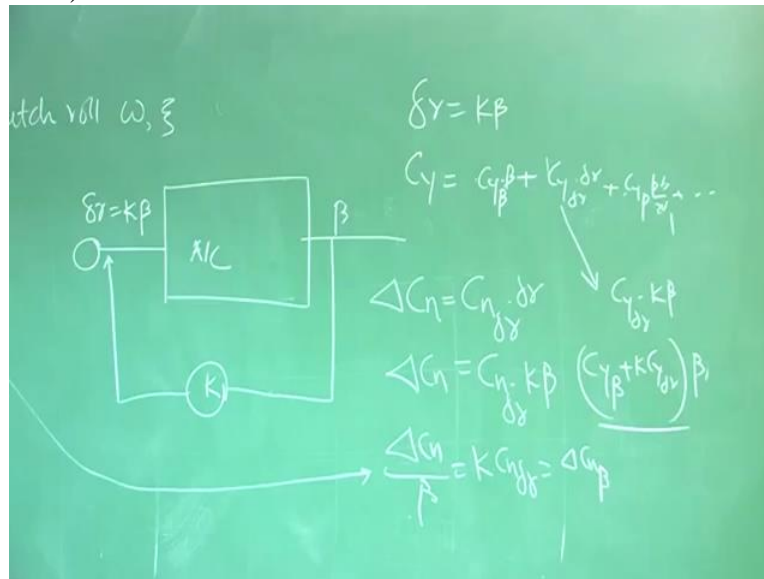 utch roll ω, ξ
δr = Kβ
C_y = C_{y_β}·β + C_{y_{δr}}·δr + C_{y_p} \frac{pb}{2V} + ...
δr = Kβ
β
A/C
K
ΔC_n = C_{n_{δr}}·δr
C_{y_{δr}}·Kβ
ΔC_n = C_{n_{δr}}·Kβ
(C_{y_β} + K C_{y_{δr}}) β
\frac{ΔC_n}{β} = K C_{n_{δr}} = ΔC_{n_β}